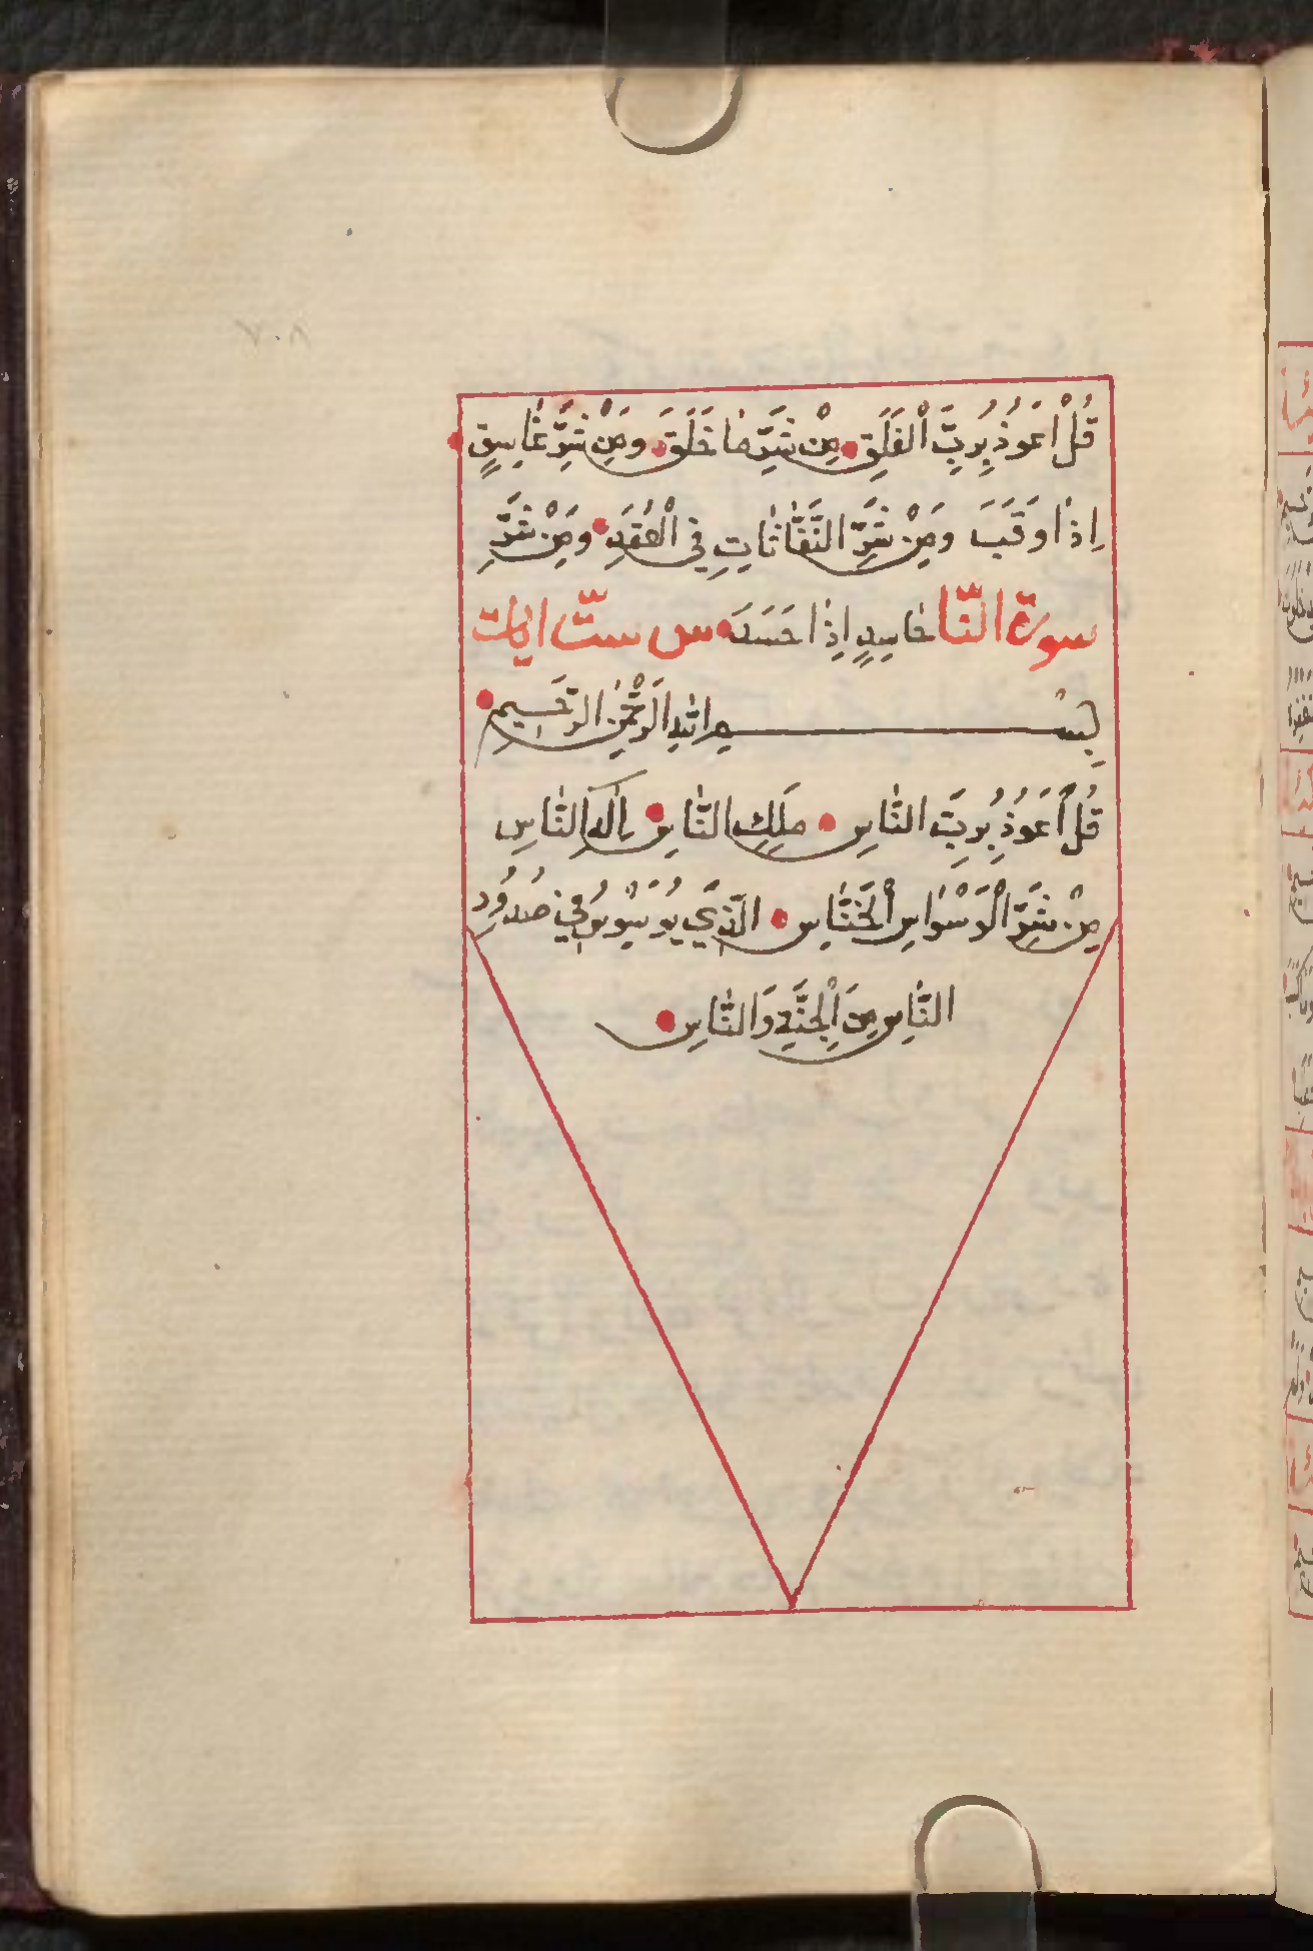 قُلْ اَعَوُذُ بِرَبِّ الْفَلَقِ مِنْ شَرِّ مَا خَلَقَ وَمِنْ شَرِّ غَاسِقٍ
اِذَا وَقَبَ وَمِنْ شَرِّ النَّفَّاثَاتِ فِي الْعُقَدِ وَمِنْ شَرِّ
سورة النّا حَاسِدٍ اِذَا حَسَدَ س ستّ ايات
بِسْمِ اللهِ الرَّحْمٰنِ الرَّحِيمِ
قُلْ اَعَوُذُ بِرَبِّ النَّاسِ مَلِكِ النَّاسِ اِلٰهِ النَّاسِ
مِنْ شَرِّ الْوَسْوَاسِ الْخَنَّاسِ الَّذِي يُوَسْوِسُ فِي صُدُورِ
النَّاسِ مِنَ الْجِنَّةِ وَالنَّاسِ